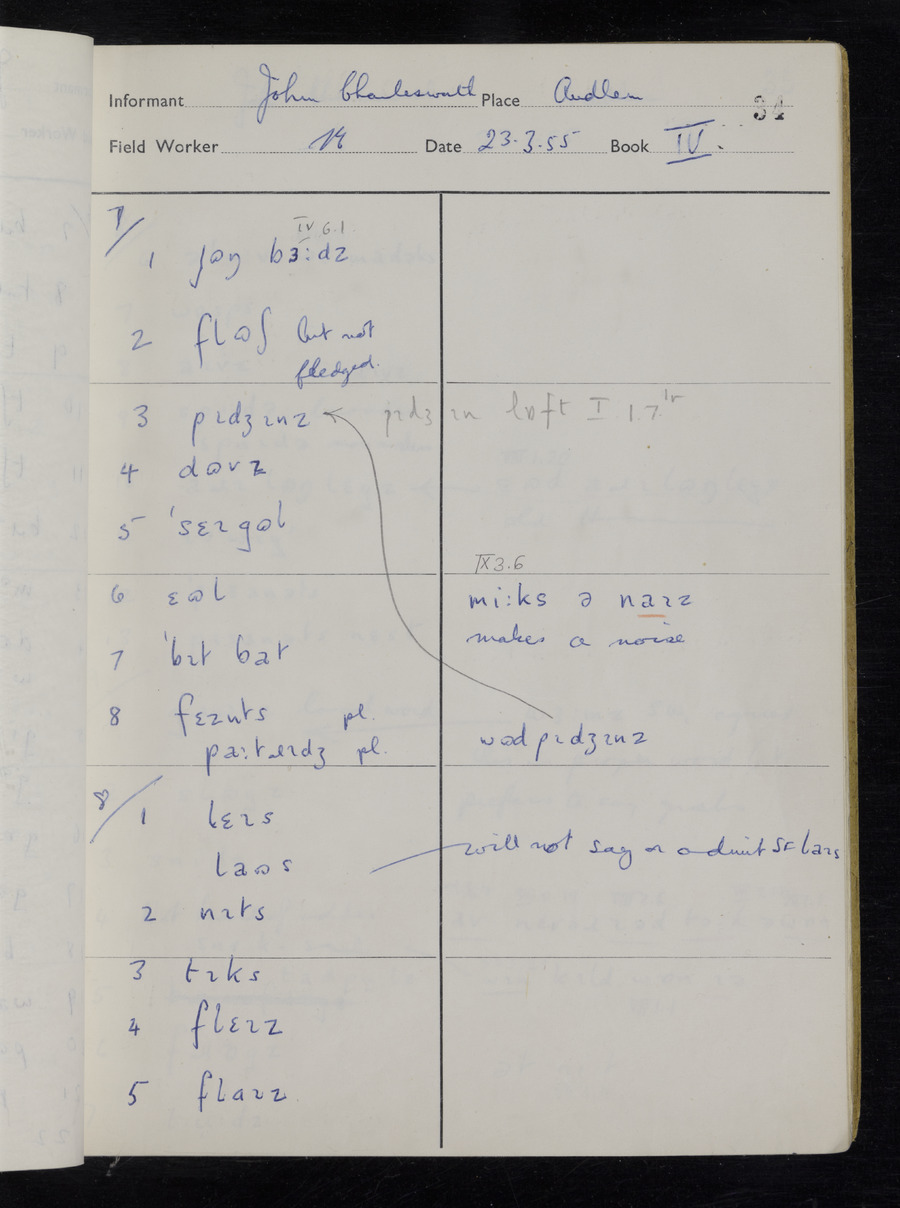 Informant John Charlesworth Place Audlem 34
Field Worker 14 Date 23.3.55 Book IV.
7/
IV 6.1
1 jɷŋ bɜ:dz
2 flɷʃ but not
fledged.
3 pɪdʒɪnz pɪdʒ ɪn lɒft I.1.7
4 dɷvz
5 'sɛɪgɷl
IX 3.6
6 ɛɷl mi:ks ə naɪz
makes a noise
7 'bɪt bat
8 fɛznts pl.
pa:tɹɪdʒ pl. wɷdpɪdʒɪnz
8/
1 lɛɪs
laɷs will not say or admit SF laɪs
2 nɪts
3 tɪks
4 flɛɪz
5 flaɪz